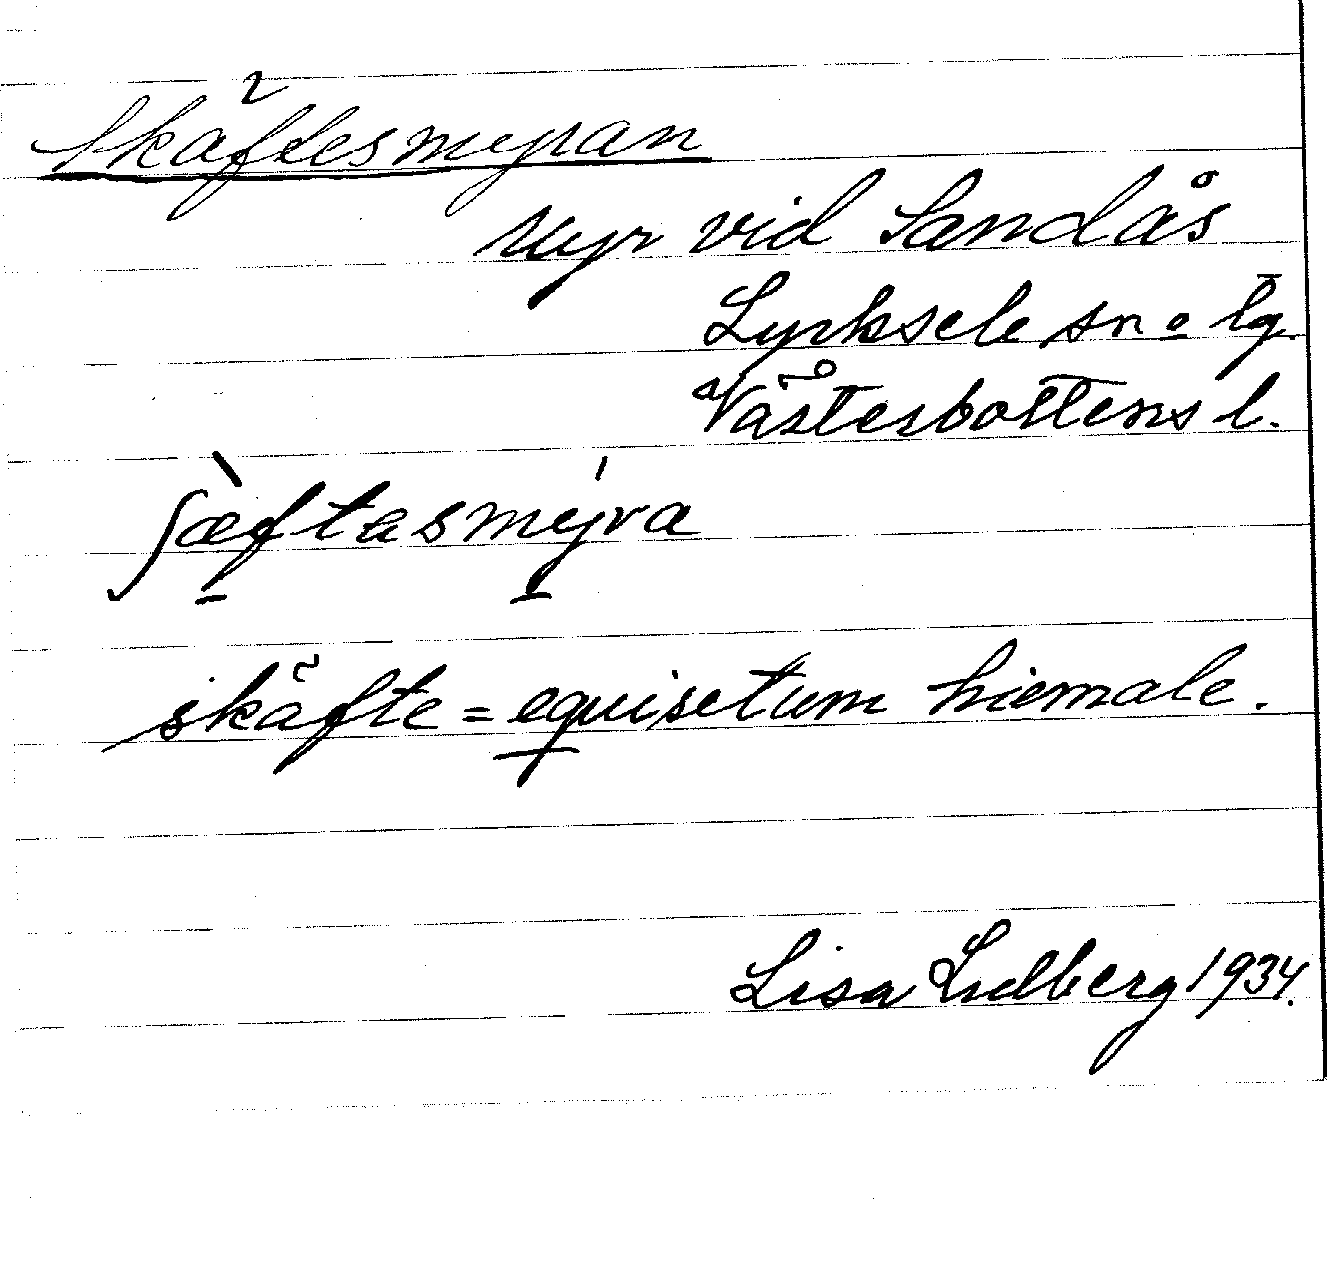 Skäftesmyran
Myr vid Sandås
Lycksele sn o lg.
Västerbottens l.
ʃæftasmyra
skäfte = equisetum hiemale.
Lisa Lidberg 1934.